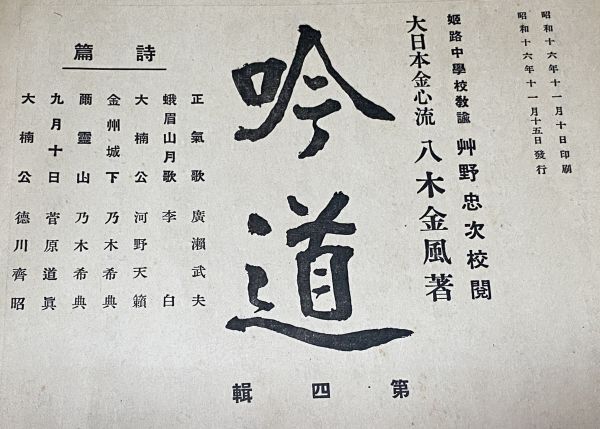 昭和十六年十一月十日印刷
昭和十六年十一月十五日發行
姬路中學校敎諭 艸野忠次校閱
大日本金心流 八木金風著
吟道
第四輯
詩篇
正氣歌 廣瀨武夫
蛾眉山月歌 李白
大楠公 河野天籟
金州城下 乃木希典
爾靈山 乃木希典
九月十日 菅原道眞
大楠公 德川齊昭